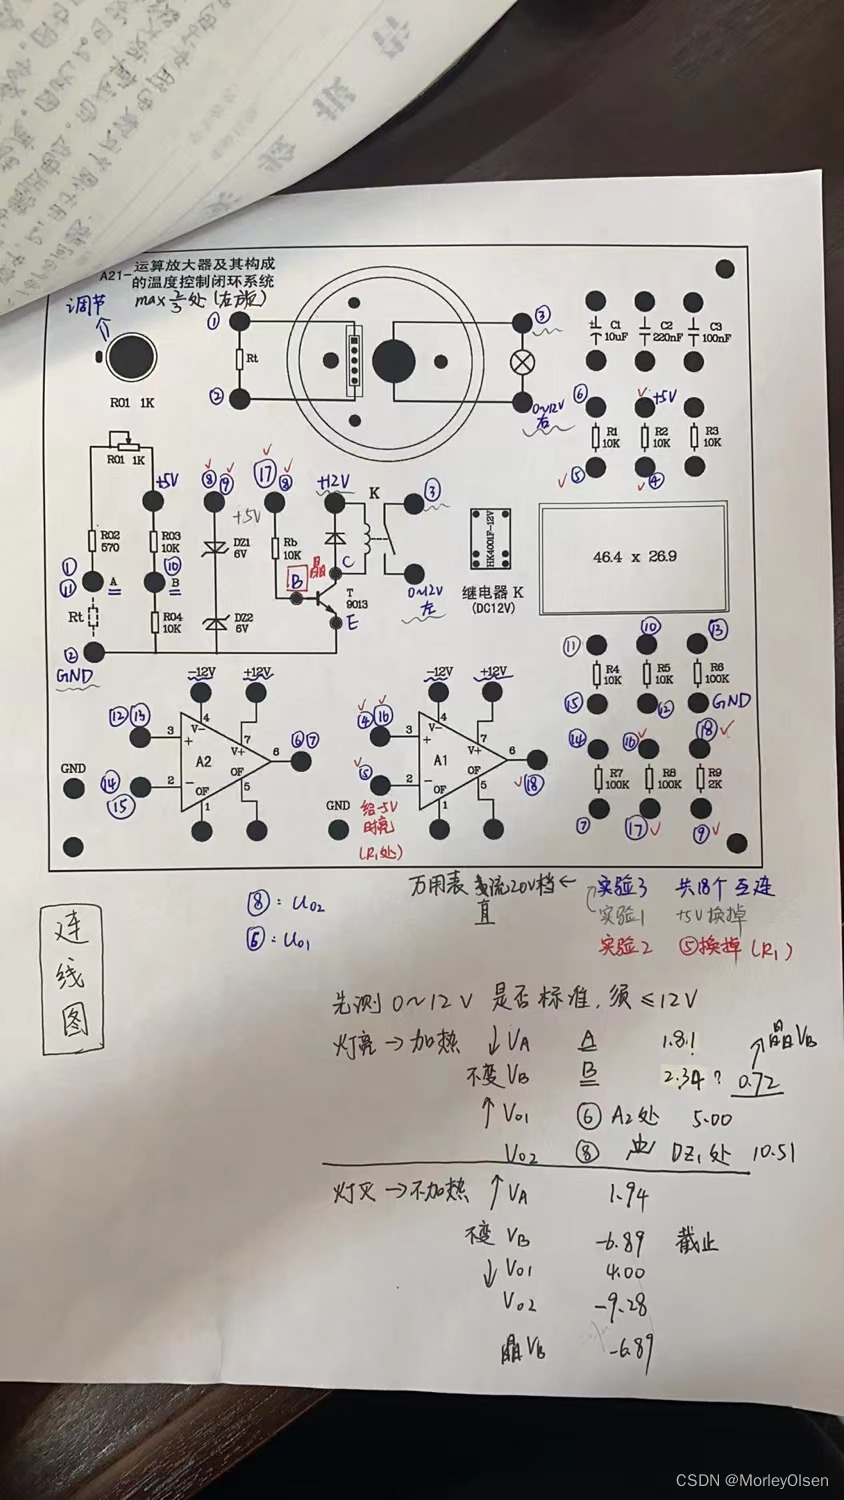 A21-运算放大器及其构成
的温度控制闭环系统
max 2/3处 (左旋)
调节
R01 1K
①
②
Rt
③
0~12V
右
C1
10uF
C2
220nF
C3
100nF
⑥
+5V
R1
10K
R2
10K
R3
10K
⑤
④
R01 1K
+5V
⑧ ⑨
+5V
⑰ ⑧
+12V
K
③
R02
570
R03
10K
DZ1
6V
Rb
10K
晶
C
HK4001F-12V
46.4 x 26.9
①
⑪
A
⑩
B
B
T
9013
0~12V
左
继电器 K
(DC12V)
Rt
R04
10K
DZ2
6V
E
②
GND
-12V
+12V
-12V
+12V
⑪
⑩
⑬
R4
10K
R5
10K
R6
100K
⑮
⑫
GND
⑫ ⑬
3
+
4
V-
7
V+
A2
6
⑥ ⑦
OF
OF
2
-
1
5
⑭
⑮
④ ⑯
3
+
4
V-
7
V+
A1
6
⑱
OF
OF
2
-
1
5
⑤
⑭
⑯
⑱
R7
100K
R8
100K
R9
2K
⑦
⑰
⑨
GND
GND
给-5V
时亮
(R1处)
连
线
图
⑧: Uo2
⑥: Uo1
万用表 直流20V档 ←
实验3 共18个互连
实验1 +5V换掉
实验2 ⑤换掉 (R1)
先测 0~12V 是否标准, 须 ≤12V
灯亮 → 加热 ↓ VA A 1.81
不变 VB B 2.34 ? 0.72
↗晶VB
↑ Vo1 ⑥ A2处 5.00
Vo2 ⑧ DZ1处 10.51
灯灭 → 不加热 ↑ VA 1.94
不变 VB -6.89 截止
↓ Vo1 4.00
Vo2 -9.28
晶VB -6.89
CSDN @MorleyOlsen